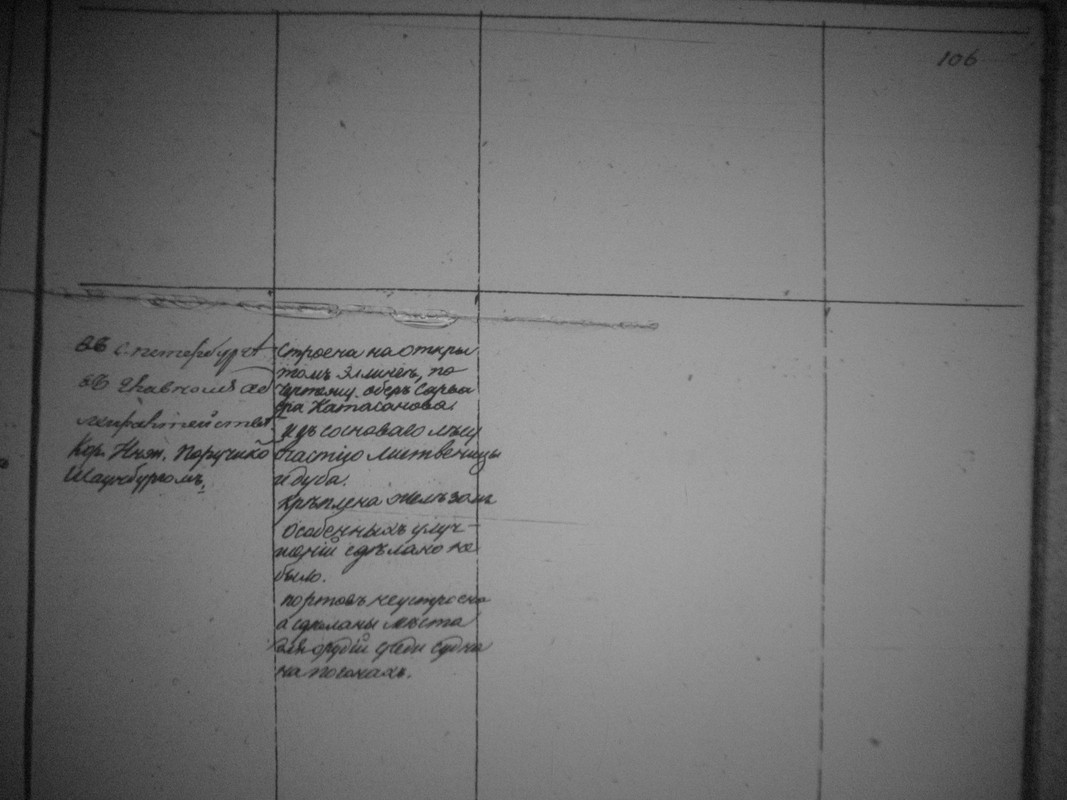 106
въ С. петербургѣ
въ Главномъ ад
миралтействѣ,
Кор. Инж. Поручико
Шаунбургомъ.
Строена на откры
томъ Эллингѣ, по
чертежу оберъ Сарва
ера Катасанова.
Изъ сосноваго лѣсу
частію лиственицы
и дуба.
Крѣплена желѣзомъ
Особенныхъ улуч-
шеній сдѣлано не
было.
портовъ неустроено
а сдѣланы мѣста
для орудій среди судна
на